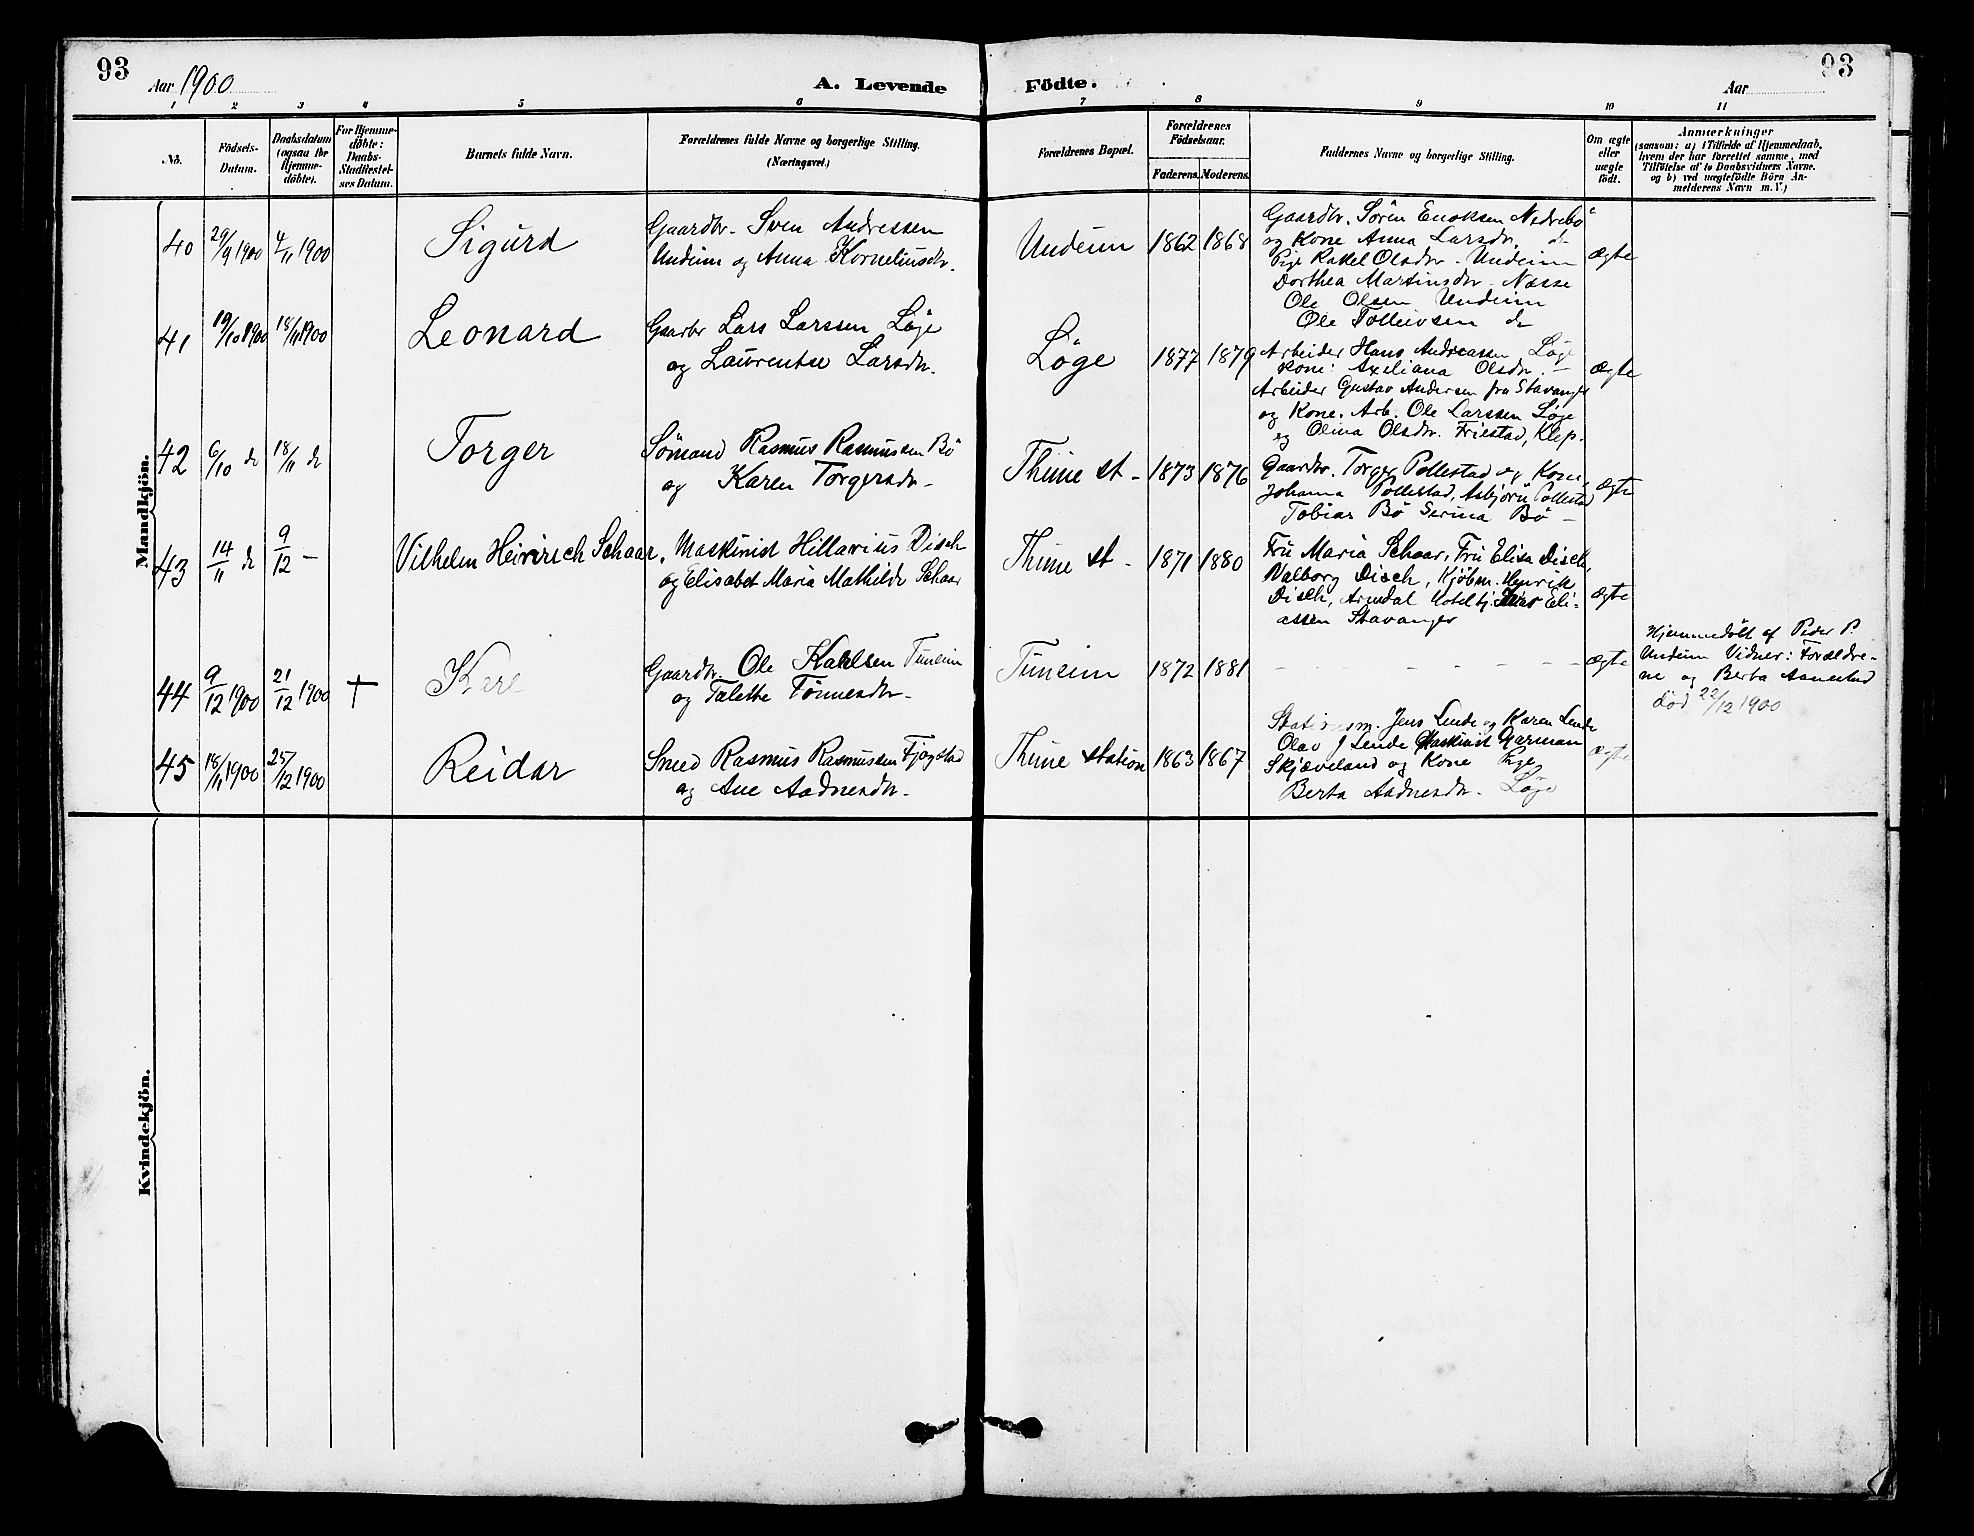 93
Aar 1900
A. Levende
Födte.
Aar
93
1 2 3 4 5 6 7 8 9 10 11
No.
Födsels-
Datum.
Daabsdatum
(ogsaa for
Hjemme-
döbte).
For Hjemme-
döbte:
Daabs-
Stadfæstel-
ses Datum.
Barnets fulde Navn.
Forældrenes fulde Navne og borgerlige Stilling.
(Næringsvei.)
Forældrenes Bopæl.
Forældrenes
Födselsaar.
Faderens. Moderens.
Faddernes Navne og borgerlige Stilling.
Om ægte
eller
uægte
födt.
Anmærkninger
(saasom: a) i Tilfælde af Hjemmedaab,
hvem der har forrettet samme, med
Tilföielse af to Daabsvidners Navne,
og b) ved uægtefödte Börn An-
melderens Navn m. V.)
Mandkjön.
40 29/9 1900 4/11 1900 Sigurd
Gaardbr. Sven Andressen
Undeim og Anna Korneliusdr.
Undeim 1862 1868
Gaardbr. Sören Enoksen Nedrebö
og Kone Anna Larsdr. do
Pige Rakel Olsdr. Undeim
Dorthea Martinsdr. Næsse
Ole Olsen Undeim
Ole Tolleivsen do
ægte
41 19/10 1900 18/11 1900 Leonard
Gaarbr Lars Larssen Löge
og Laurentse Larsdr.
Löge 1877 1879
Arbeider Hans Andreassen Löge
Kone: Axeliana Olsdr. –
Arbeider Gustav Andersen fra Stavanger
og Kone. Arb. Ole Larssen Löge
og Olina Olsdr. Friestad, Klep.
ægte
42 6/10 do 18/11 do Torger
Sömand Rasmus Rasmussen Bö
og Karen Torgersdr.
Thime st. 1873 1876
Gaardbr. Torger Pollestad og Kone,
Johanna Pollestad, Asbjörn Pollestad
Tobias Bö Serina Bö –
ægte
43 14/11 do 9/12 – Vilhelm Heinrich Schaar.
Maskinist Hillarius Disch
og Elisabet Maria Mathilde Schaar
Thime st. 1871 1880
Fru Maria Schaar, Fru Elisa Disch,
Valborg Disch, Kjöbm. Henrik
Disch, Arendal Hotelbj. Eli-
assen Stavanger
ægte
44 9/12 1900 21/12 1900 +
Gaardbr. Ole Kahlsen Tuneim
og Talette Tönnesdr.
Tuneim 1872 1881
– – – – – –
ægte
Hjemmedöbt af Peder P.
Undeim Vidner: Forældre-
ne og Berta Aanestad
död 22/12 1900
45 18/11 1900 25/12 1900 Reidar
Smed Rasmus Rasmussen Fjogstad
og Ane Aadnesdr.
Thime station 1863 1867
Stationsm. Jens Lende og Karen Lende
Olav J Lende Maskinist Garman
Skjæveland og Kone Pige
Berta Aadnesdr. Löge
ægte
Kvindekjön.